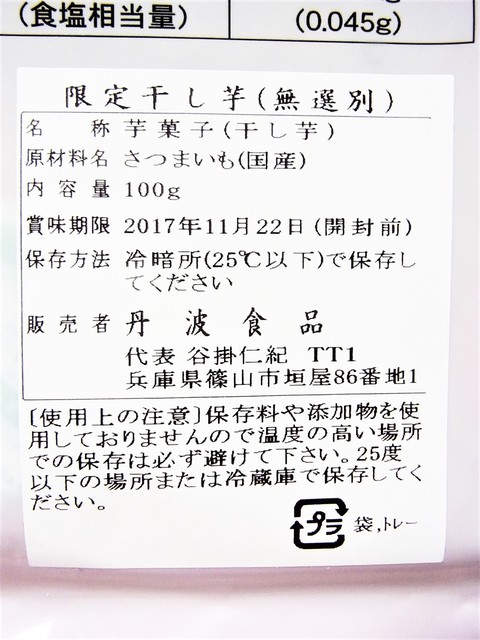 (食塩相当量)
(0.045g)
限定干し芋(無選別)
名 称 芋菓子(干し芋)
原材料名 さつまいも(国産)
内容量 100g
賞味期限 2017年11月22日(開封前)
保存方法 冷暗所(25℃以下)で保存し
てください
販売者 丹波食品
代表 谷掛仁紀 TT1
兵庫県篠山市垣屋86番地1
[使用上の注意]保存料や添加物を使
用しておりませんので温度の高い場所
での保存は必ず避けて下さい。25度
以下の場所または冷蔵庫で保存してく
ださい。
プラ 袋,トレー